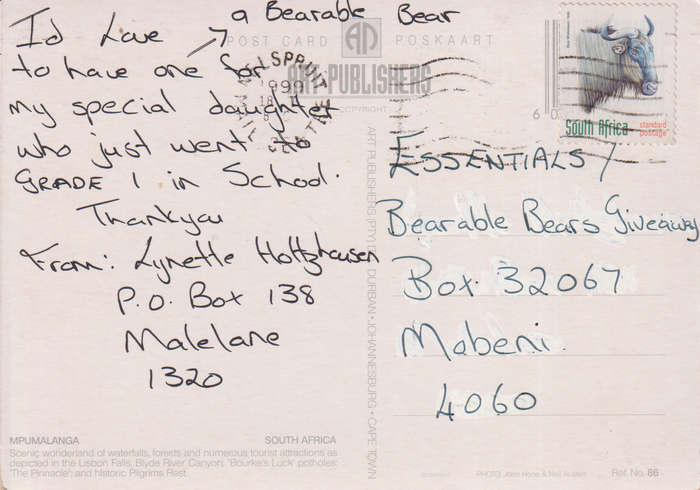 a Bearable Bear
I'd Love
to have one for
my special daughter
who just went to
GRADE 1 in School.
Thankyou
From: Lynette Holtzhausen
P.O. Box 138
Malelane
1320
POST CARD POSKAART
ART PUBLISHERS
COPYRIGHT
NELSPRUIT
1999
South Africa
standard
postage
ESSENTIALS/
Bearable Bears Giveaway
Box 32067
Mobeni
4060
ART PUBLISHERS (PTY) LTD DURBAN • JOHANNESBURG • CAPE TOWN
MPUMALANGA SOUTH AFRICA
Scenic wonderland of waterfalls, forests and numerous tourist attractions as
depicted in the Lisbon Falls, Blyde River Canyon, 'Bourke's Luck' potholes:
'The Pinnacle': and historic Pilgrims Rest.
PHOTO: John Hone & Neil Austen
Ref. No. 86